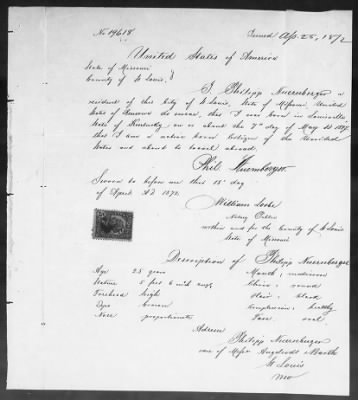 No 19618
Issued Ap. 25, 1872
United States of America
State of Missouri
County of St Louis
I Philipp Nuernberger a
resident of this City of St Louis, State of Missouri United
States of America do swear, that I was born in Louisville
State of Kentucky, on or about the 2nd day of May
that I am a native born Citizen of the United
States and about to travel abroad.
Phil. Nuernberger.
Sworn to before me this 18 day
of April AD 1872.
William
Notary Public
within and for the County of St Louis
State of Missouri
Description of Philipp Nuernberger
Age 25 years Mouth, medium
Stature 5 feet 6 inch engl. Chin, round
Forehead high Hair, black
Eyes brown Complexion, healthy
Nose proportionate Face oval
Address
Philipp Nuernberger
care of Messrs Angelrodt & Barth
St Louis
Mo